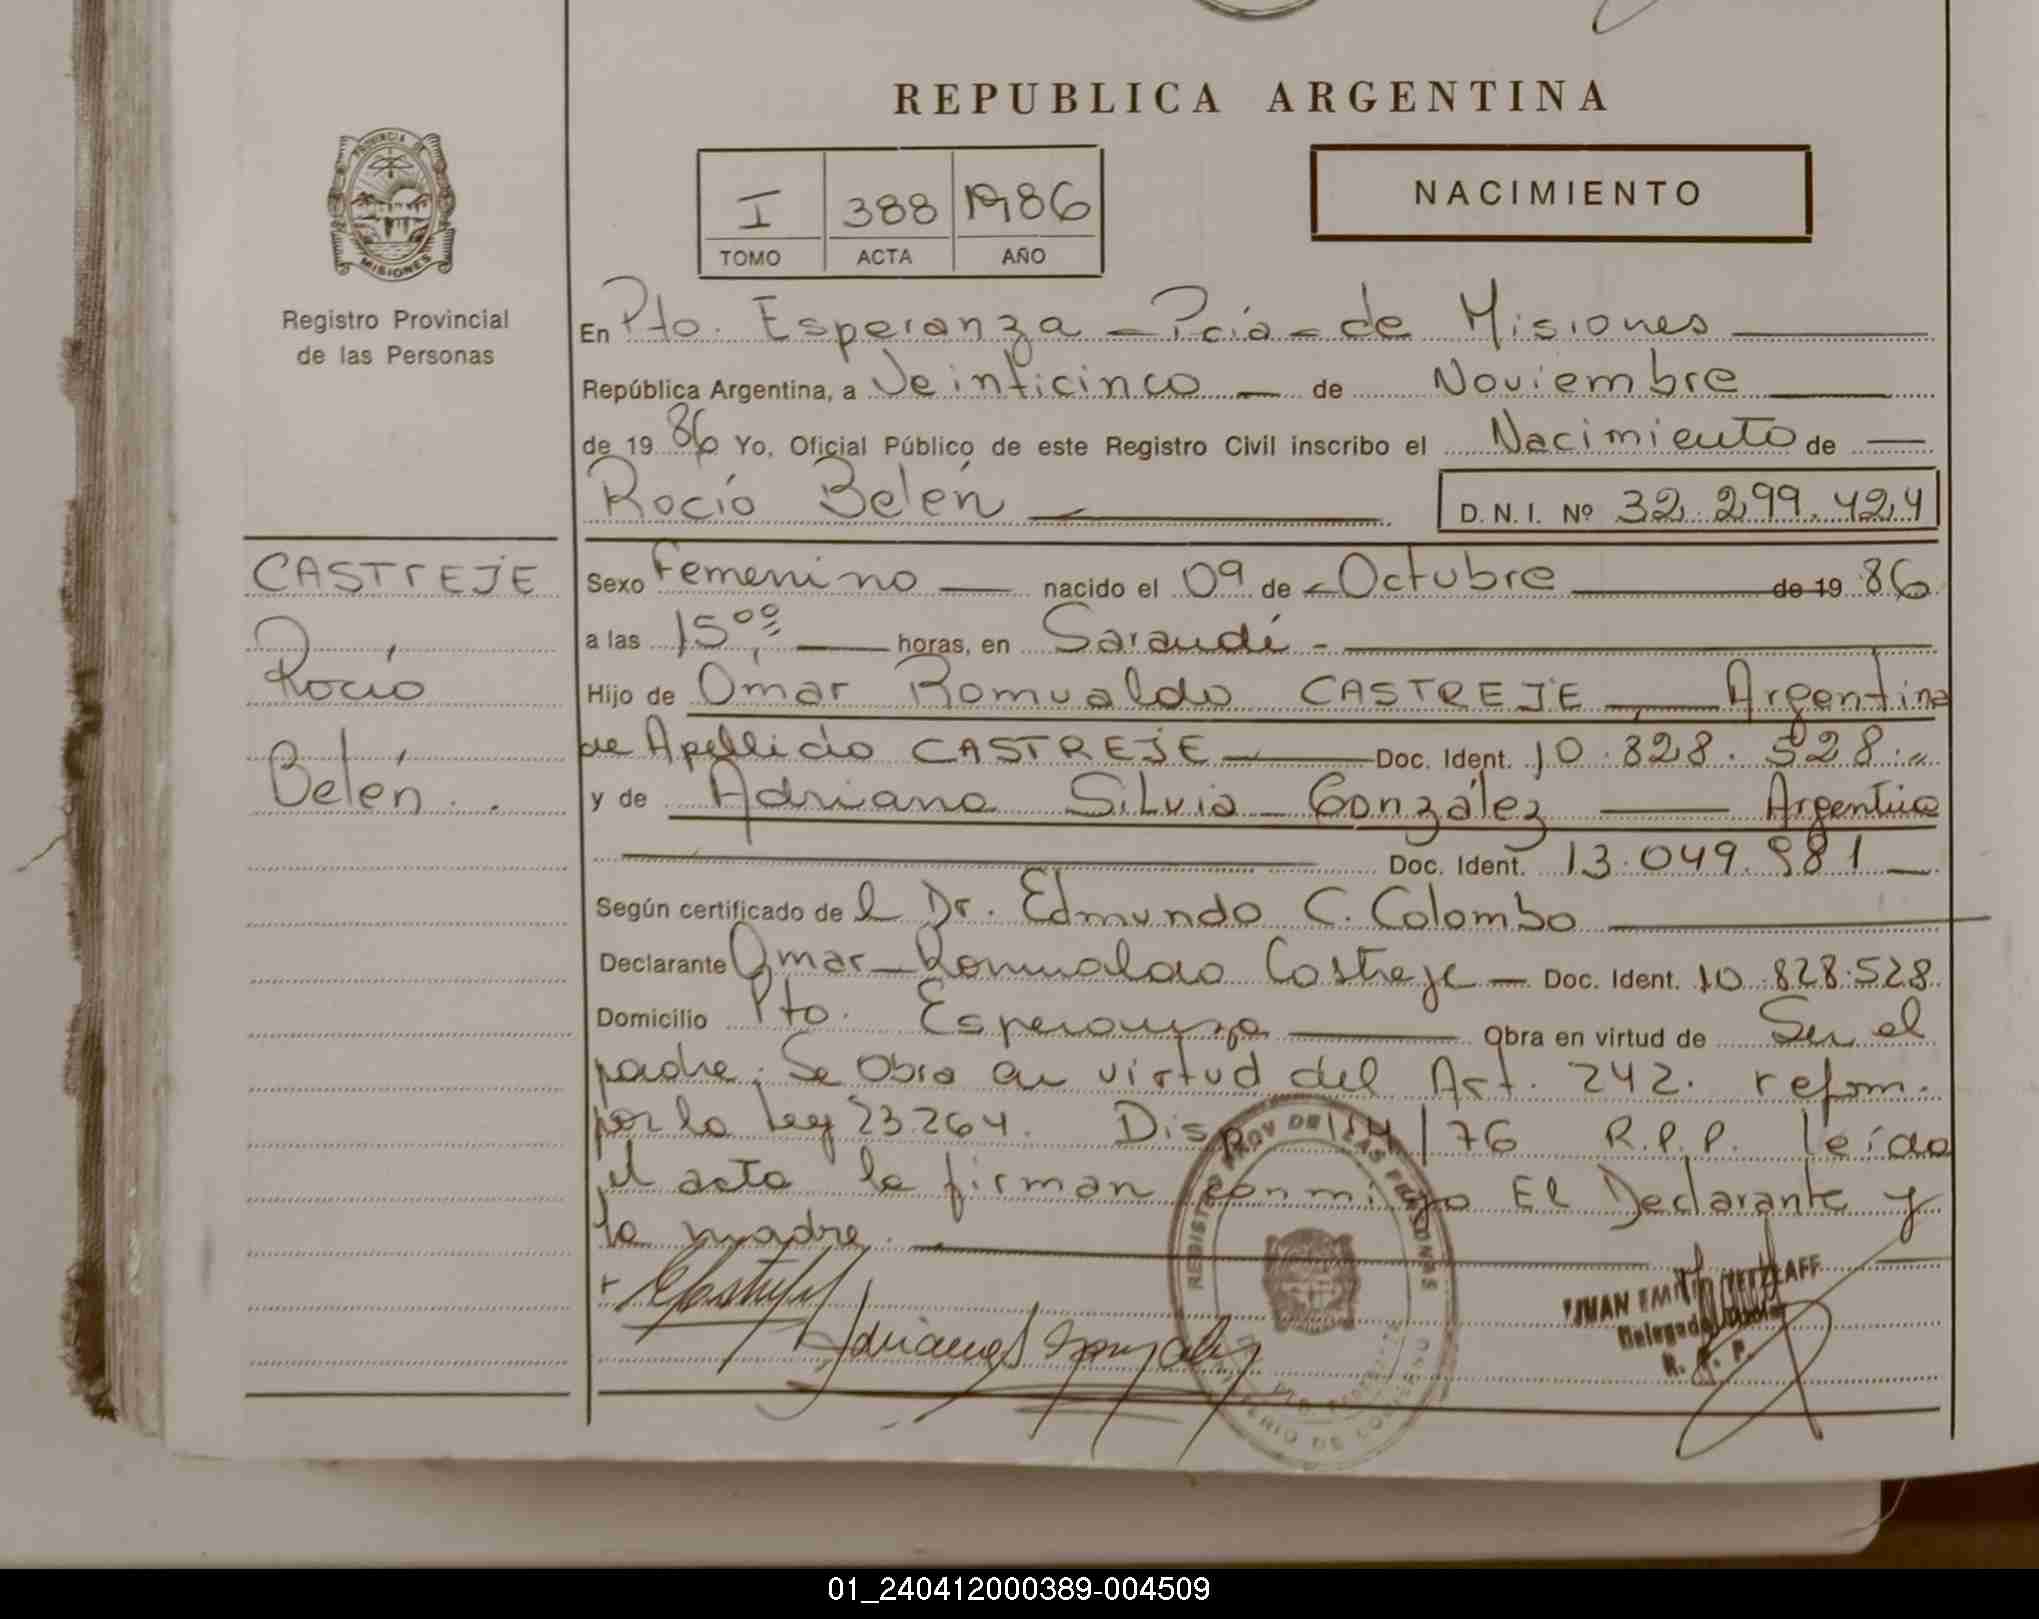 REPUBLICA ARGENTINA
PROVINCIA DE
MISIONES
Registro Provincial
de las Personas
I 388 1986
TOMO ACTA AÑO
NACIMIENTO
En Pto. Esperanza - Pcia - de Misiones
República Argentina, a Veinticinco de Noviembre
de 1986 Yo, Oficial Público de este Registro Civil inscribo el Nacimiento de
Rocío Belén D.N.I. Nº 32.299.424
CASTREJE
Rocío
Belén..
Sexo Femenino nacido el 09 de Octubre de 19 86
a las 15,00 horas, en Sarandí -
Hijo de Omar Romualdo CASTREJE Argentina
de Apellido CASTREJE Doc. Ident. 10.828.528.-
y de Adriana Silvia González Argentina
Doc. Ident. 13.049.981
Según certificado del Dr. Edmundo C. Colombo
Declarante Omar Romualdo Castreje - Doc. Ident. 10.828.528
Domicilio Pto. Esperanza Obra en virtud de Ser el
padre. Se Obra en virtud del Art. 242. reform.
por la Ley 23.264. Disp /76 R.P.P. leída
el acta la firman conmigo El Declarante y
la madre.
REGISTRO PROV DE LAS PERSONAS
MINISTERIO DE GOBIERNO
JUAN
Delegado
R. P.
01_240412000389-004509